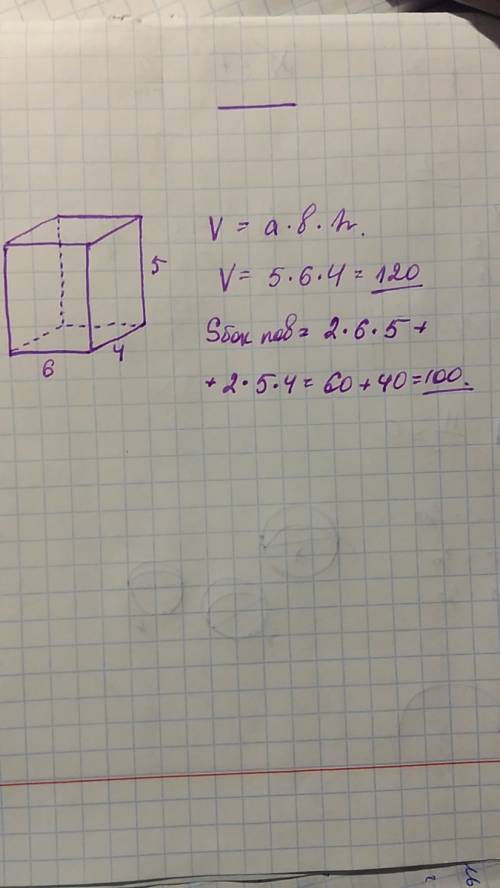 V = a·b·h.
5
V = 5·6·4 = 120
4
6
Sбок пов = 2·6·5 +
+ 2·5·4 = 60 + 40 = 100.